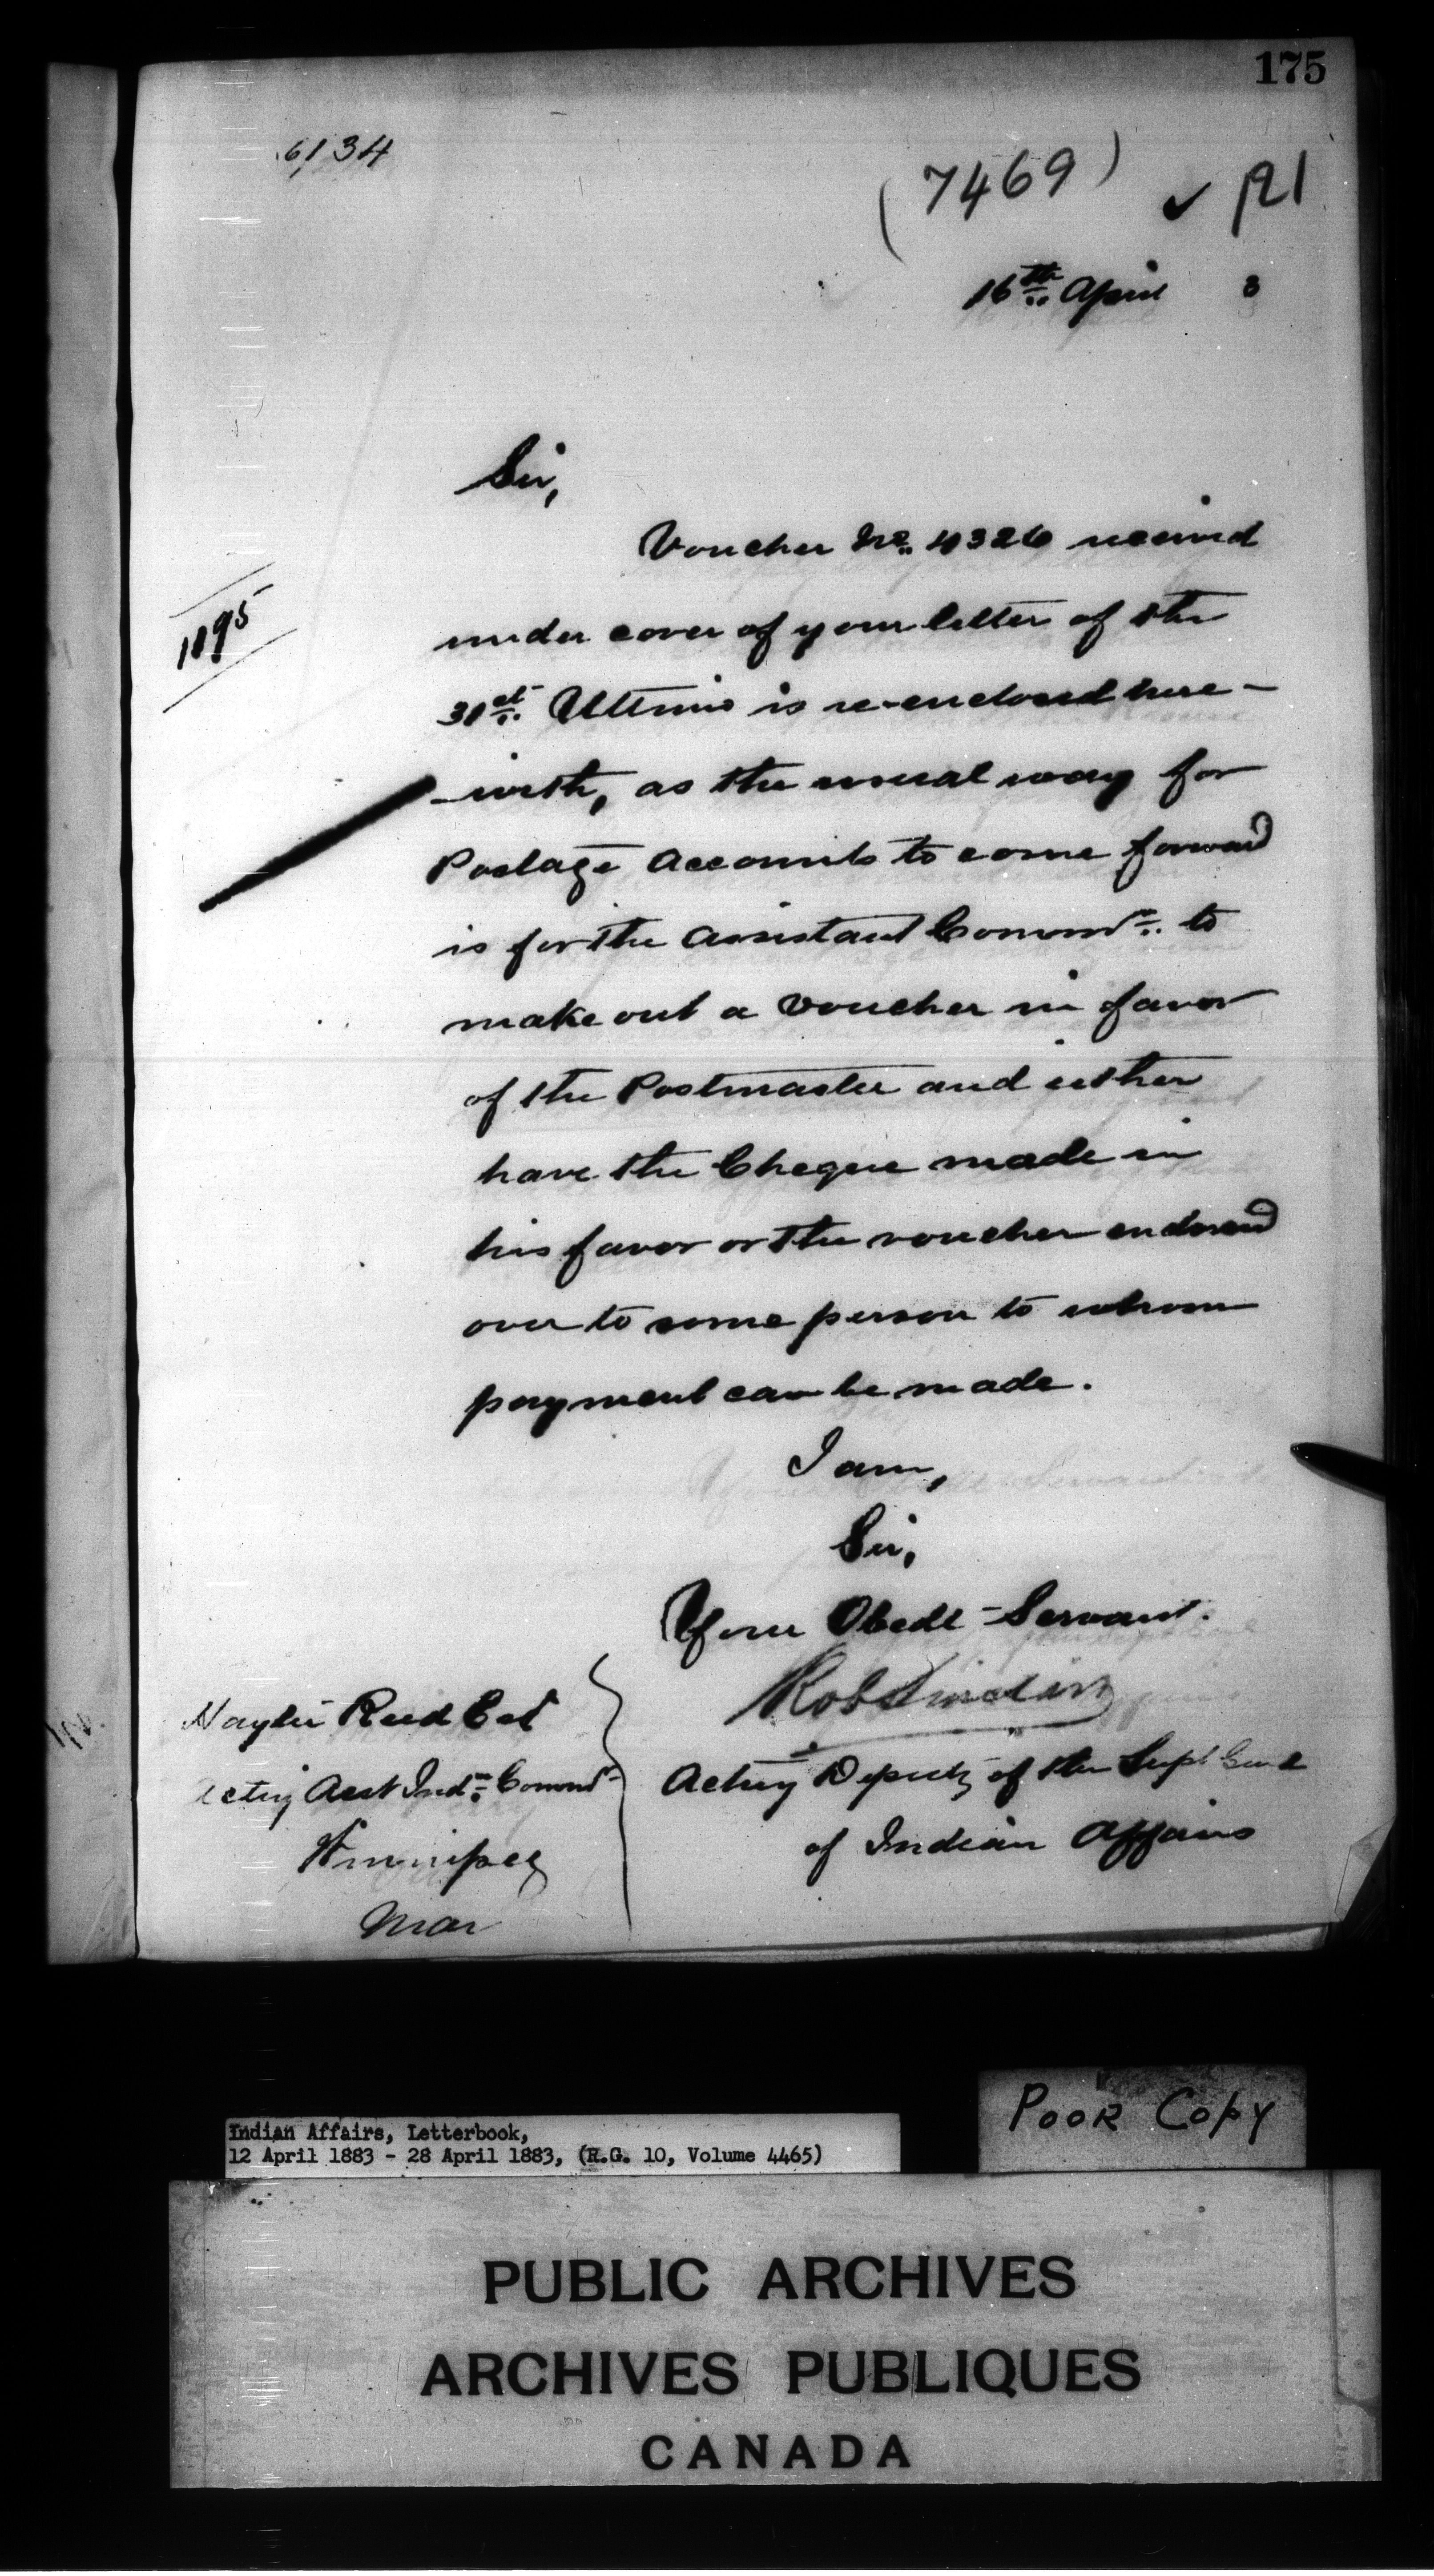 175
6134
(7469) ✓ R1
16th April 3
Sir,
Voucher No. 4326 received
under cover of your letter of the
1895
31st. Ultimo is re-enclosed here-
-with, as the usual way for
Postage Accounts to come forward
is for the Assistant Commr. to
make out a voucher in favor
of the Postmaster and either
have the Cheque made in
his favor or the voucher endorsed
over to some person to whom
payment can be made.
I am,
Sir,
Your Obedt Servant.
Rob Sinclair
Hayter Reed Esq
Acting Asst Indn. Commr
Winnipeg
Man
Acting Deputy of the Supt Genl
of Indian Affairs
POOR COPY
Indian Affairs, Letterbook,
12 April 1883 - 28 April 1883, (R.G. 10, Volume 4465)
PUBLIC ARCHIVES
ARCHIVES PUBLIQUES
CANADA